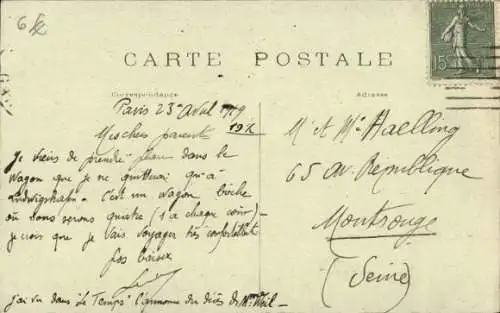 CARTE POSTALE
Correspondance
Adresse
15
Paris 23 Avril 1919
19h
Mes chers parents
Je viens de prendre place dans le
wagon que je ne quitterai qu'à
Ludwigshafen - C'est un wagon boche
où nous serons quatre (1 à chaque coin) -
je crois que je vais voyager très confortablement
Gros baisers
J'ai vu dans "Le Temps" l'annonce du décès de Mme Weil -
M et Me Haelling
65 av. République
Montrouge
(Seine)